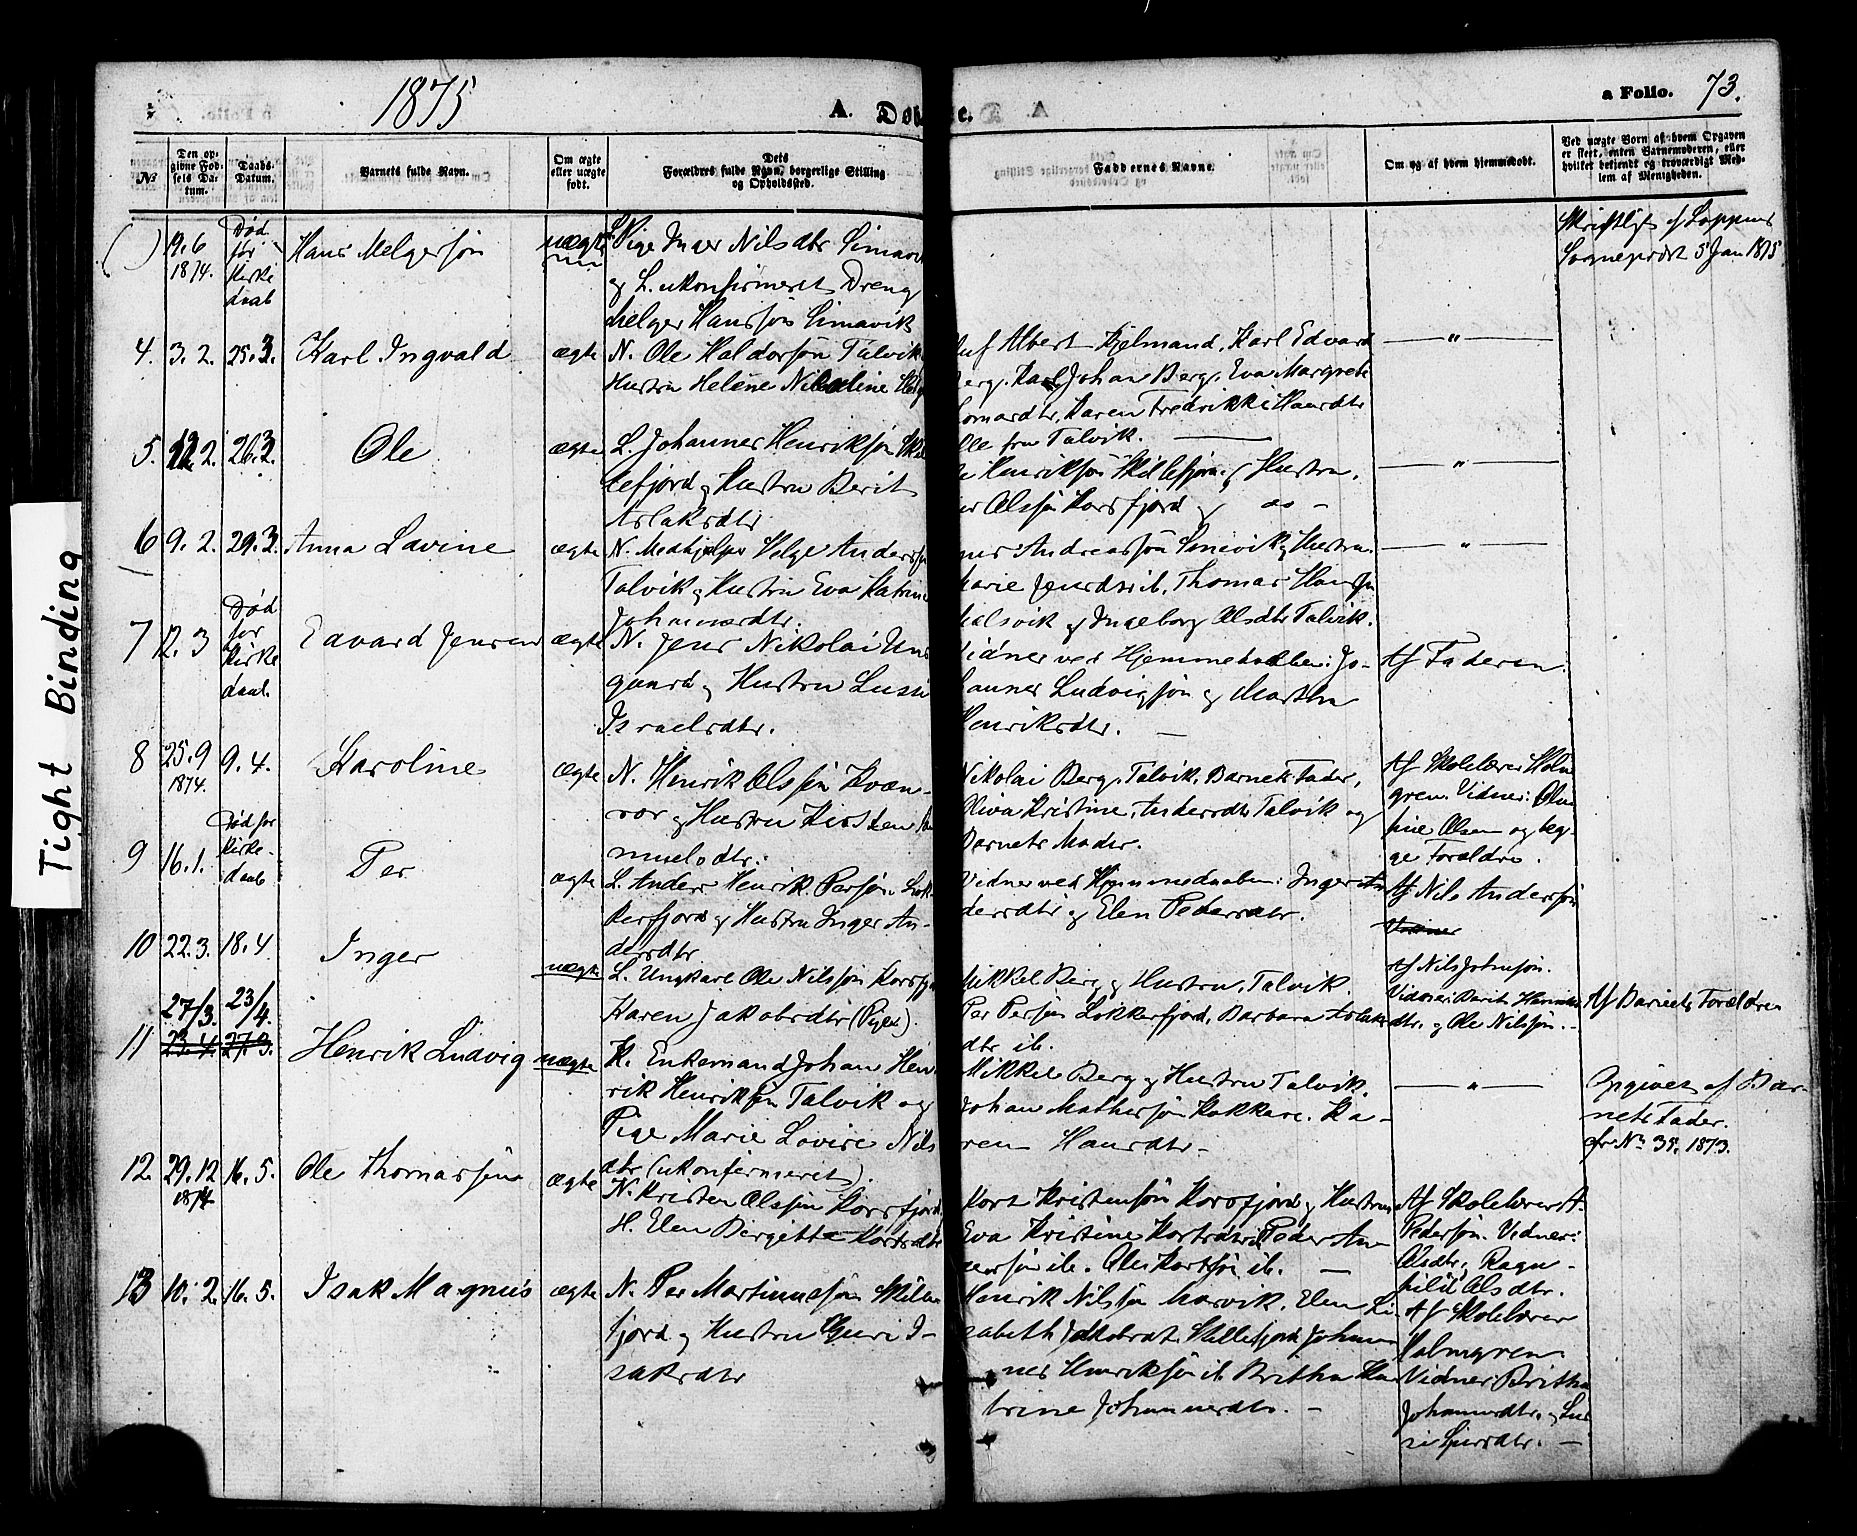 1875
A. Døb
e.
a Folio. 73.
No
Den opgivne Fødsels Datum.
Daabs-Datum.
Barnets fulde Navn.
Om ægte eller uægte født.
Dets Forældres fulde Navn, borgerlige Stilling og Opholdssted.
Faddernes Navne.
Om og af hvem hjemmedøbt.
Ved uægte Børn af hvem Opgaven er skeet, enten Barnemoderen, eller hvilket bekjendt og troværdigt Medlem af Menigheden.
( ) 19.6 1874. Død før Kirkedaab Hans Melgersøn uægte L. Pige Inger Nilsdtr Simavi
og L. ukonfirmeret Dreng
Melger Hanssøn Simavik
Skriftligt af Loppens
Sognepræst 5 Jan 1875
4. 3.2. 25.3. Karl Ingvald ægte N. Ole Haldorsøn Talvik
Hustru Helene Nikoline
Albert Hjelmand, Karl Edvard
Berg, Karl Johan Berg, Eva Margrete
Karen Fredrikke Hansdtr
Alle fra Talvik.
— " —
5. 2. 26.3. Ole ægte L. Johannes Henriksøn
lefjord og Hustru Berit
Aslaksdtr
Henriksøn Skillefjord og Hustru,
Olssøn Korsfjord og do –
— " —
6 9.2. 29.3. Anna Lavine ægte N. Medhjelper Helge Anderssøn
Talvik og Hustru Eva Katrine
Johannesdtr.
Andreassøn Simevik og Hustru
Marie Jensdtr ib, Thomas Hanssøn
og Ingeborg Olsdtr Talvik.
— " —
7 12.3 Død før Kirkedaab. Edvard Jensen ægte N. Jens Nikolai
gaard og Hustru Lussi
Israelsdtr.
Vidner ved Hjemmedaaben: Jo-
hannes Ludvigsøn og Martha
Henriksdtr. —
Af Faderen
8 25.9 1874. 9.4. Karoline ægte N. Henrik Olssøn Kvæn-
vær og Hustru Kirsten Sa
muelsdtr.
Nikolai Berg, Talvik, Barnets Fader,
Oliva Kristine Andersdtr Talvik og
Barnets Moder.
Af Skolelærer Holm
gren. Vidner: Oluf
ine Olsen og beg-
ge Forældre.
9 16.1. Død før Kirke-daab Per ægte L. Anders Henrik Persøn Lok
kerfjord og Hustru Inger An-
dersdtr
Vidner ved Hjemmedaaben: Inger An
dersdtr og Elen Pedersdtr.
Af Nils Anderssøn
Vidner
10 22.3. 18.4 Inger uægte L. Ungkarl Ole Nilssøn Korsfj
Karen Jakobsdtr (Pige).
Mikkel Berg og Hustru, Talvik.
Per Persøn Lokkerfjord, Barbara Aslaks
dtr ib.
Af Nils Johnsøn.
Vidner: Berit Hans
dtr. og Ole Nilssøn. –
Af Barnets Forældre
27/3. 23/4.
11 23.4. 27.3. Henrik Ludvig uægte K. Enkemand Johan Hen
rik Henriksøn Talvik og
Pige Marie Lovise Nils
dtr (ukonfirmeret).
Mikkel Berg og Hustru Talvik,
Johan Mathissøn Kakkare. Ka-
ren Hansdtr –
— " —
Opgivet af Bar-
nets Fader.
cfr No 35. 1873.
12. 29.12 1874 16.5. Ole Thomassøn ægte N. Kristen Olssøn Korsfjord
H. Elen Birgitte Kortsdtr
Kort Kristensøn Korsfjord og Hustru
Eva Kristine Kortsdtr, Peder An
dersøn ib. Ole Kortsøn ib. —
Af Skolelærer A.
Pedersøn. Vidner:
Olsdtr. og Ragn-
hild Olsdtr.
13 10.2. 16.5. Isak Magnus ægte N. Per Martinussøn Skille
fjord og Hustru Guri I-
saksdtr
Henrik Nilssøn Marvik, Elen Li
sabeth Jakobsdt. Skillefjord Johan
nes Henriksøn ib Britha Ka
trine Johannesdtr. –
Af Skolelærer
Holmgren.
Vidner: Britha
Johannesdtr. og Lus
si Sjursdtr. —
Tight Binding